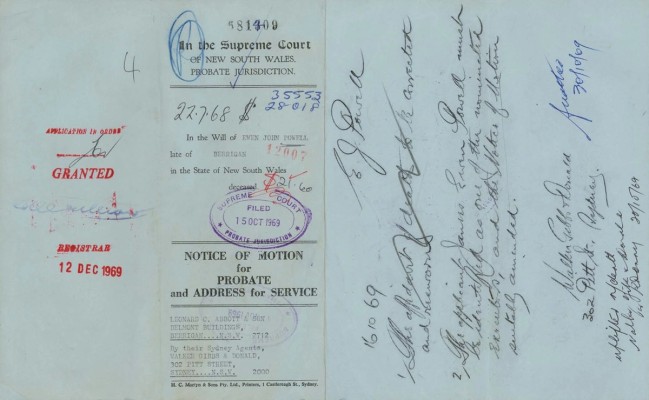 4
581309
In the Supreme Court
OF NEW SOUTH WALES.
PROBATE JURISDICTION.
35553
28-018
22.7.68 $
In the Will of EWEN JOHN POWELL
late of 12007
BERRIGAN
in the State of New South Wales
deceased $21.60
SUPREME COURT
FILED
15 OCT 1969
PROBATE JURISDICTION
NOTICE OF MOTION
for
PROBATE
and ADDRESS for SERVICE
LEONARD C. ABBOTT & SON
BELMONT BUILDINGS,
BERRIGAN....N.S.W. 2712
By their Sydney Agents,
WALKER GIBBS & DONALD,
302 PITT STREET,
SYDNEY....N.S.W. 2000
H. C. Martyn & Sons Pty. Ltd., Printers, 1 Castlereagh St., Sydney.
APPLICATION IN ORDER
GRANTED
REGISTRAR
12 DEC 1969
E J Powell
16 10 69
1 The affidavit of to be corrected
and resworn
2 The applicant James Ewen Powell must
be identified as one of the nominated
Executors and the Notice of Motion
suitably amended.
30/10/69
Walker Gibbs & Donald
302 Pitt St.
30/10/69